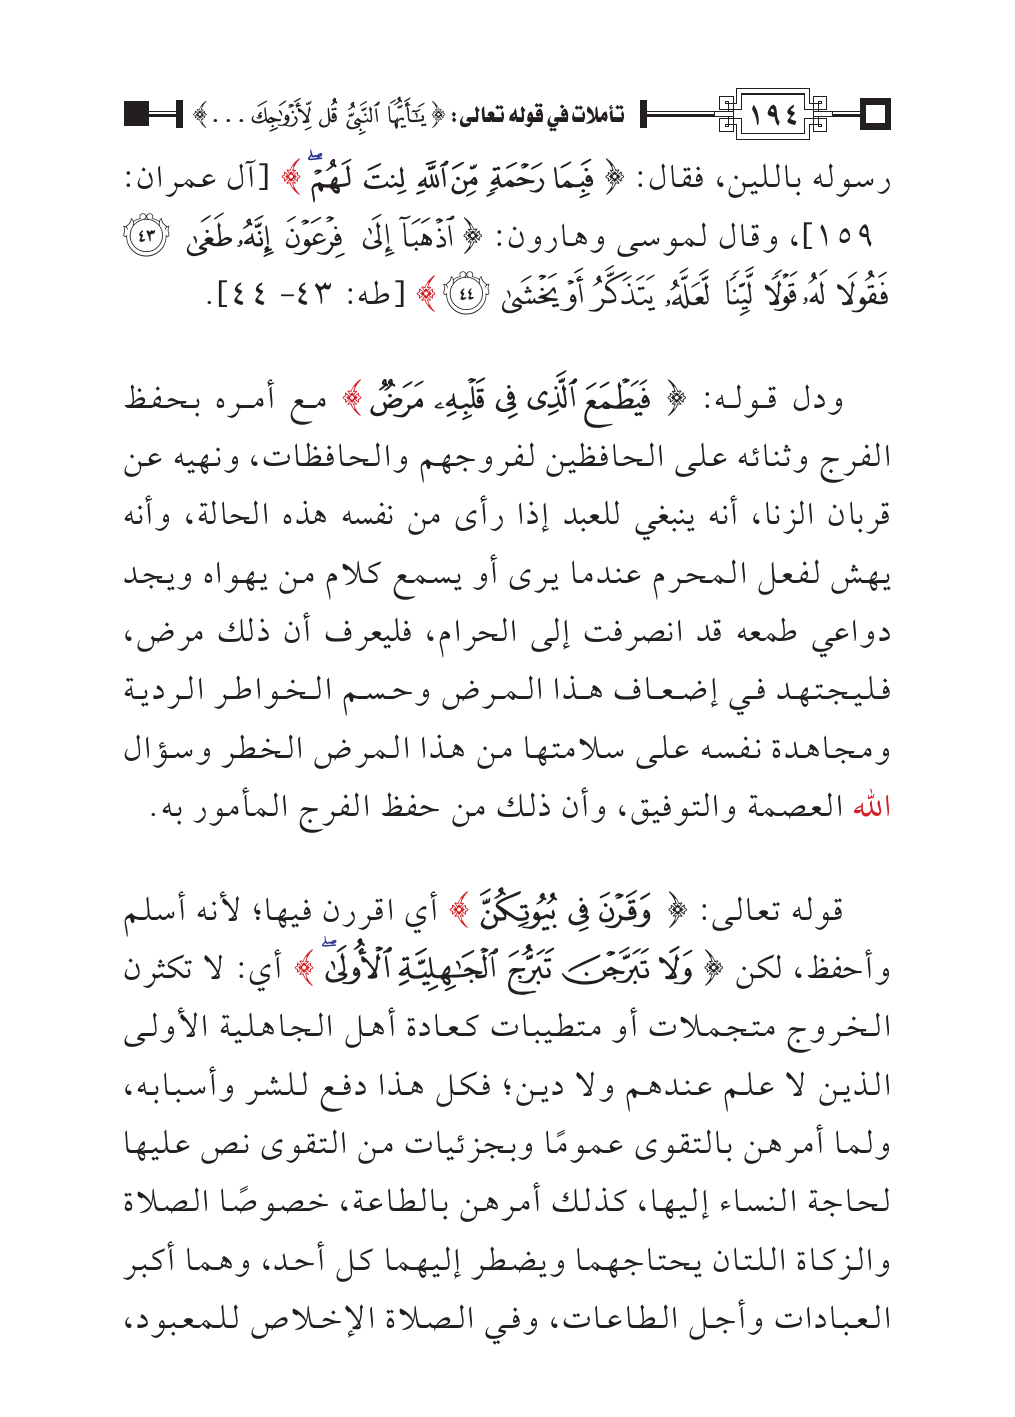 ١٩٤ تأملات في قوله تعالى: ﴿ يَٰٓأَيُّهَا ٱلنَّبِيُّ قُل لِّأَزْوَٰجِكَ ... ﴾
رسوله باللين، فقال: ﴿ فَبِمَا رَحْمَةٍ مِّنَ ٱللَّهِ لِنتَ لَهُمْ ۖ ﴾ [آل عمران:
١٥٩]، وقال لموسى وهارون: ﴿ ٱذْهَبَآ إِلَىٰ فِرْعَوْنَ إِنَّهُۥ طَغَىٰ ٤٣
فَقُولَا لَهُۥ قَوْلًا لَّيِّنًا لَّعَلَّهُۥ يَتَذَكَّرُ أَوْ يَخْشَىٰ ٤٤ ﴾ [طه: ٤٣- ٤٤].
ودل قوله: ﴿ فَيَطْمَعَ ٱلَّذِى فِى قَلْبِهِۦ مَرَضٌ ﴾ مع أمره بحفظ
الفرج وثنائه على الحافظين لفروجهم والحافظات، ونهيه عن
قربان الزنا، أنه ينبغي للعبد إذا رأى من نفسه هذه الحالة، وأنه
يهش لفعل المحرم عندما يرى أو يسمع كلام من يهواه ويجد
دواعي طمعه قد انصرفت إلى الحرام، فليعرف أن ذلك مرض،
فليجتهد في إضعاف هذا المرض وحسم الخواطر الردية
ومجاهدة نفسه على سلامتها من هذا المرض الخطر وسؤال
الله العصمة والتوفيق، وأن ذلك من حفظ الفرج المأمور به.
قوله تعالى: ﴿ وَقَرْنَ فِى بُيُوتِكُنَّ ﴾ أي اقررن فيها؛ لأنه أسلم
وأحفظ، لكن ﴿ وَلَا تَبَرَّجْنَ تَبَرُّجَ ٱلْجَٰهِلِيَّةِ ٱلْأُولَىٰ ۖ ﴾ أي: لا تكثرن
الخروج متجملات أو متطيبات كعادة أهل الجاهلية الأولى
الذين لا علم عندهم ولا دين؛ فكل هذا دفع للشر وأسبابه،
ولما أمرهن بالتقوى عمومًا وبجزئيات من التقوى نص عليها
لحاجة النساء إليها، كذلك أمرهن بالطاعة، خصوصًا الصلاة
والزكاة اللتان يحتاجهما ويضطر إليهما كل أحد، وهما أكبر
العبادات وأجل الطاعات، وفي الصلاة الإخلاص للمعبود،